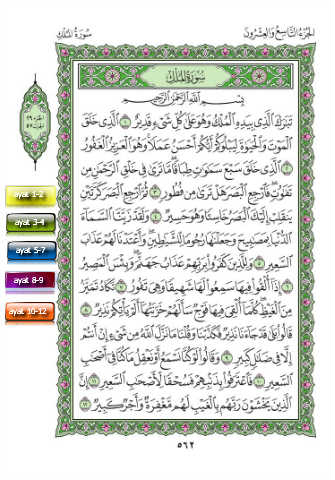 سُورَةُ المُلْكِ الجُزْءُ التَّاسِعُ وَالعِشْرُونَ
سُورَةُ المُلْكِ
بِسْمِ اللَّهِ الرَّحْمَٰنِ الرَّحِيمِ
تَبَارَكَ الَّذِي بِيَدِهِ الْمُلْكُ وَهُوَ عَلَىٰ كُلِّ شَيْءٍ قَدِيرٌ ١ الَّذِي خَلَقَ
الْمَوْتَ وَالْحَيَاةَ لِيَبْلُوَكُمْ أَيُّكُمْ أَحْسَنُ عَمَلًا وَهُوَ الْعَزِيزُ الْغَفُورُ
٢ الَّذِي خَلَقَ سَبْعَ سَمَاوَاتٍ طِبَاقًا مَّا تَرَىٰ فِي خَلْقِ الرَّحْمَٰنِ مِن
تَفَاوُتٍ فَارْجِعِ الْبَصَرَ هَلْ تَرَىٰ مِن فُطُورٍ ٣ ثُمَّ ارْجِعِ الْبَصَرَ كَرَّتَيْنِ
يَنقَلِبْ إِلَيْكَ الْبَصَرُ خَاسِئًا وَهُوَ حَسِيرٌ ٤ وَلَقَدْ زَيَّنَّا السَّمَاءَ
الدُّنْيَا بِمَصَابِيحَ وَجَعَلْنَاهَا رُجُومًا لِّلشَّيَاطِينِ وَأَعْتَدْنَا لَهُمْ عَذَابَ
السَّعِيرِ ٥ وَلِلَّذِينَ كَفَرُوا بِرَبِّهِمْ عَذَابُ جَهَنَّمَ وَبِئْسَ الْمَصِيرُ
٦ إِذَا أُلْقُوا فِيهَا سَمِعُوا لَهَا شَهِيقًا وَهِيَ تَفُورُ ٧ تَكَادُ تَمَيَّزُ
مِنَ الْغَيْظِ كُلَّمَا أُلْقِيَ فِيهَا فَوْجٌ سَأَلَهُمْ خَزَنَتُهَا أَلَمْ يَأْتِكُمْ نَذِيرٌ ٨
قَالُوا بَلَىٰ قَدْ جَاءَنَا نَذِيرٌ فَكَذَّبْنَا وَقُلْنَا مَا نَزَّلَ اللَّهُ مِن شَيْءٍ إِنْ أَنتُمْ
إِلَّا فِي ضَلَالٍ كَبِيرٍ ٩ وَقَالُوا لَوْ كُنَّا نَسْمَعُ أَوْ نَعْقِلُ مَا كُنَّا فِي أَصْحَابِ
السَّعِيرِ ١٠ فَاعْتَرَفُوا بِذَنبِهِمْ فَسُحْقًا لِّأَصْحَابِ السَّعِيرِ ١١ إِنَّ
الَّذِينَ يَخْشَوْنَ رَبَّهُم بِالْغَيْبِ لَهُم مَّغْفِرَةٌ وَأَجْرٌ كَبِيرٌ ١٢
٥٦٢
ayat 1-2
ayat 3-4
ayat 5-7
ayat 8-9
ayat 10-12